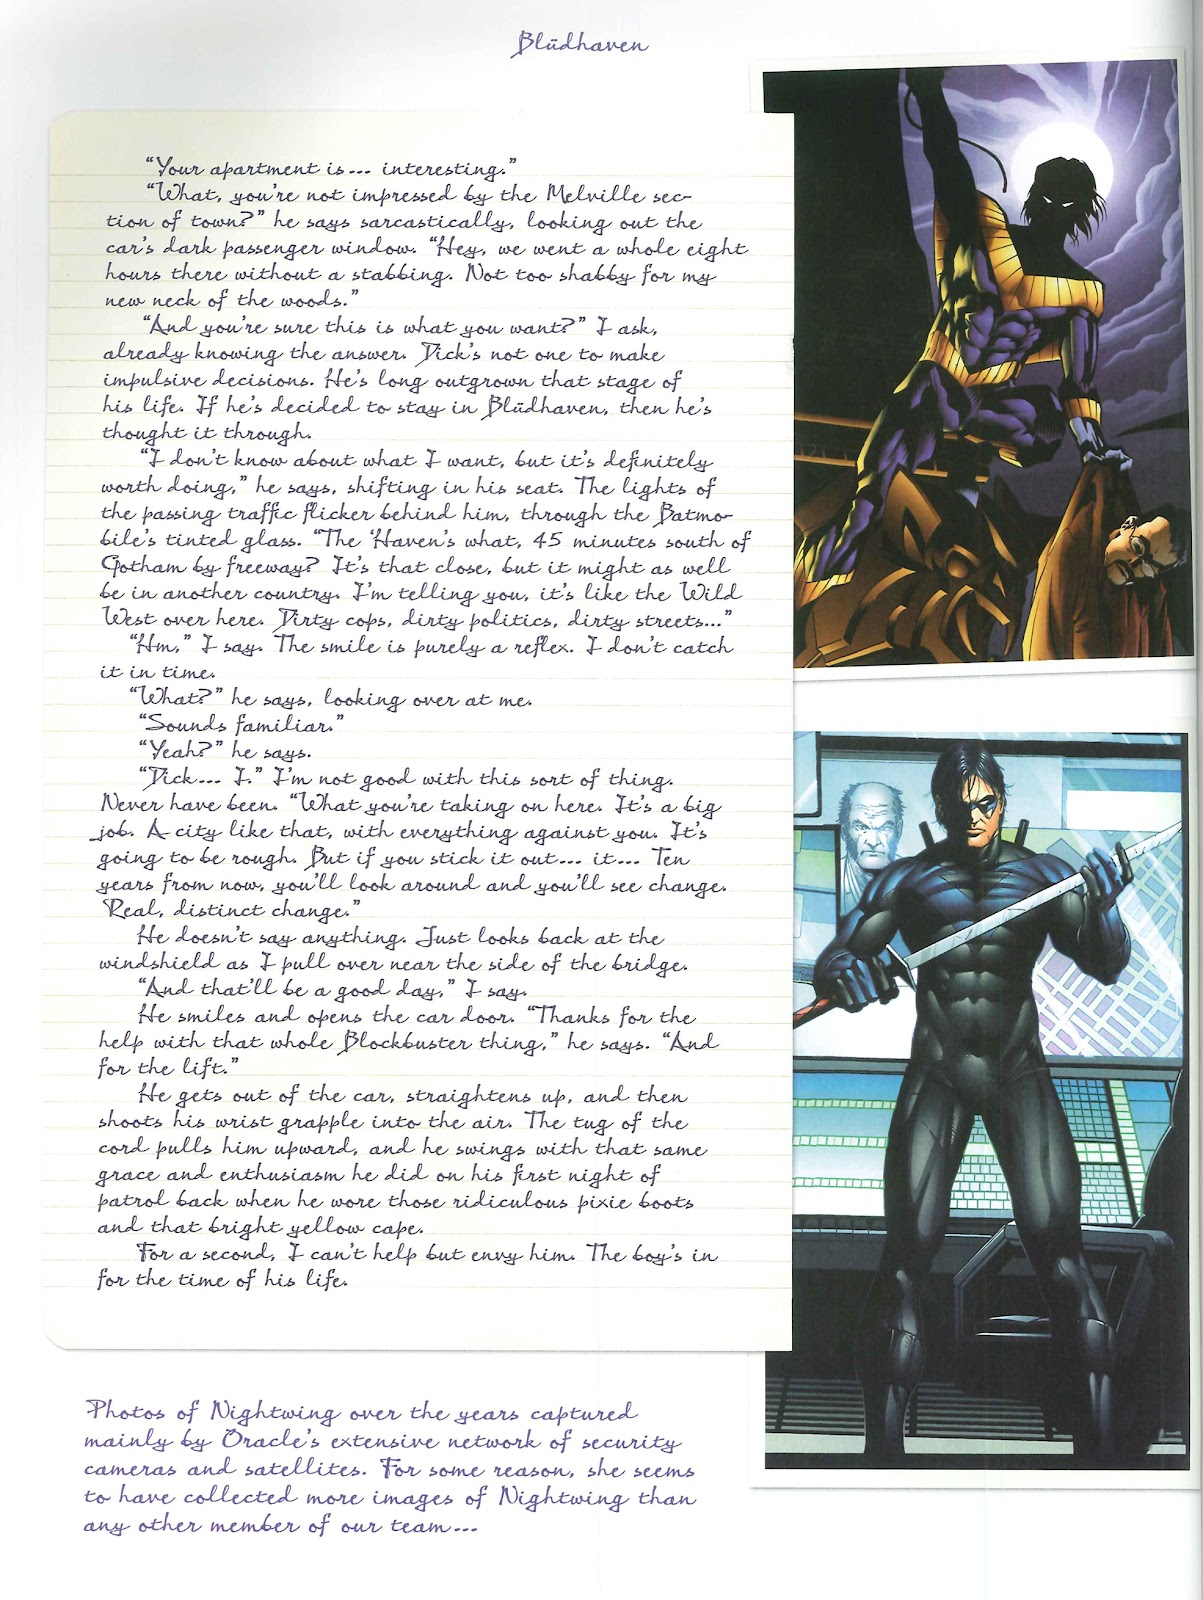 Blūdhaven
“Your apartment is... interesting.”
“What, you’re not impressed by the Melville sec-
tion of town?” he says sarcastically, looking out the
car’s dark passenger window. “Hey, we went a whole eight
hours there without a stabbing. Not too shabby for my
new neck of the woods.”
“And you’re sure this is what you want?” I ask,
already knowing the answer. Dick’s not one to make
impulsive decisions. He’s long outgrown that stage of
his life. If he’s decided to stay in Blūdhaven, then he’s
thought it through.
“I don’t know about what I want, but it’s definitely
worth doing,” he says, shifting in his seat. The lights of
the passing traffic flicker behind him, through the Batmo-
bile’s tinted glass. “The ‘Haven’s what, 45 minutes south of
Gotham by freeway? It’s that close, but it might as well
be in another country. I’m telling you, it’s like the Wild
West over here. Dirty cops, dirty politics, dirty streets...”
“Hm,” I say. The smile is purely a reflex. I don’t catch
it in time.
“What?” he says, looking over at me.
“Sounds familiar.”
“Yeah?” he says.
“Dick... I.” I’m not good with this sort of thing.
Never have been. “What you’re taking on here. It’s a big
job. A city like that, with everything against you. It’s
going to be rough. But if you stick it out... it... Ten
years from now, you’ll look around and you’ll see change.
Real, distinct change.”
He doesn’t say anything. Just looks back at the
windshield as I pull over near the side of the bridge.
“And that’ll be a good day,” I say.
He smiles and opens the car door. “Thanks for the
help with that whole Blockbuster thing,” he says. “And
for the lift.”
He gets out of the car, straightens up, and then
shoots his wrist grapple into the air. The tug of the
cord pulls him upward, and he swings with that same
grace and enthusiasm he did on his first night of
patrol back when he wore those ridiculous pixie boots
and that bright yellow cape.
For a second, I can’t help but envy him. The boy’s in
for the time of his life.
Photos of Nightwing over the years captured
mainly by Oracle’s extensive network of security
cameras and satellites. For some reason, she seems
to have collected more images of Nightwing than
any other member of our team...